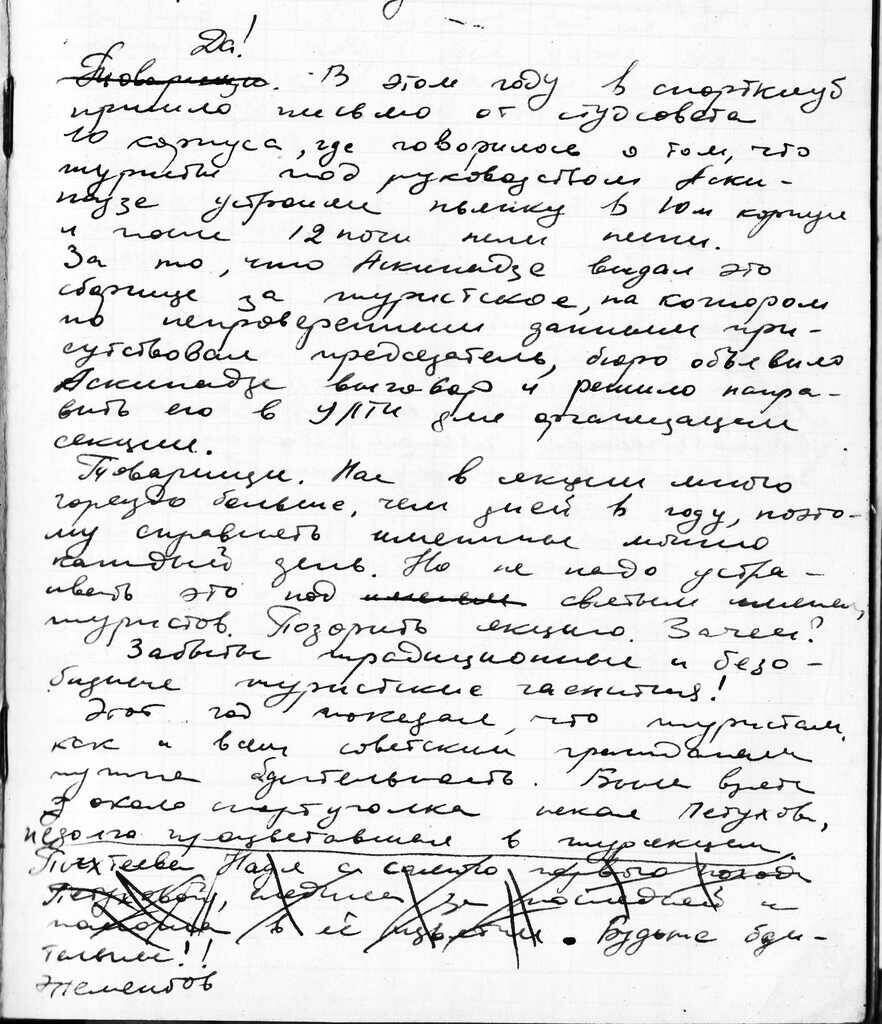 Да!
Товарищи. В этом году в спортклуб
пришло письмо от студсовета
10 корпуса, где говорилось о том, что
туристы под руководством Аски-
надзе устроили пьянку в 10м корпусе
и после 12 ночи пели песни.
За то, что Аскинадзе выдал это
сборище за туристское, на котором
по непроверенным данным при-
сутствовал председатель, бюро объявило
Аскинадзе выговор и решило напра-
вить его в УЛТИ для организации
секции.
Товарищи. Нас в секции много
гораздо больше, чем дней в году, поэто-
му справлять именины можно
каждый день. Но не надо устра-
ивать это под именем святым именем
туристов. Позорить секцию. Зачем?
Забыты традиционные и безо-
бидные туристские чаепития!
Этот год показал, что туристам,
как и всем советским гражданам
нужна бдительность. Была взята
около спортуголка некая Петухова,
недолго процветавшая в турсекции.
Пыхтеева Надя с самого первого похода
Петуховой, следила за последней и
помогла в её изъятии. Будьте бди-
тельны!!